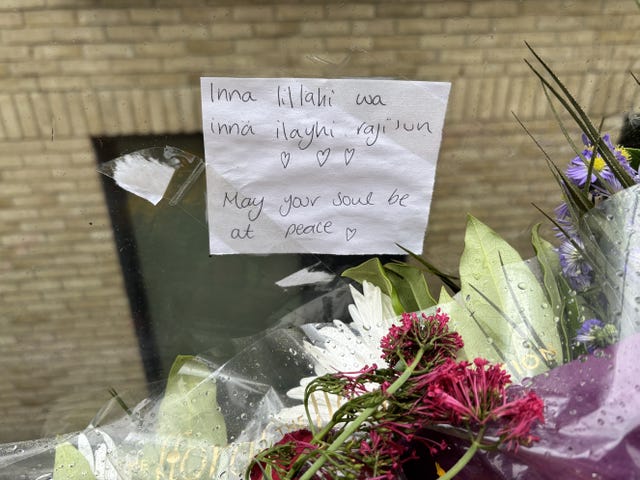 Inna lillahi wa
innā ilayhi raji'un
♡ ♡ ♡
May your soul be
at peace ♡